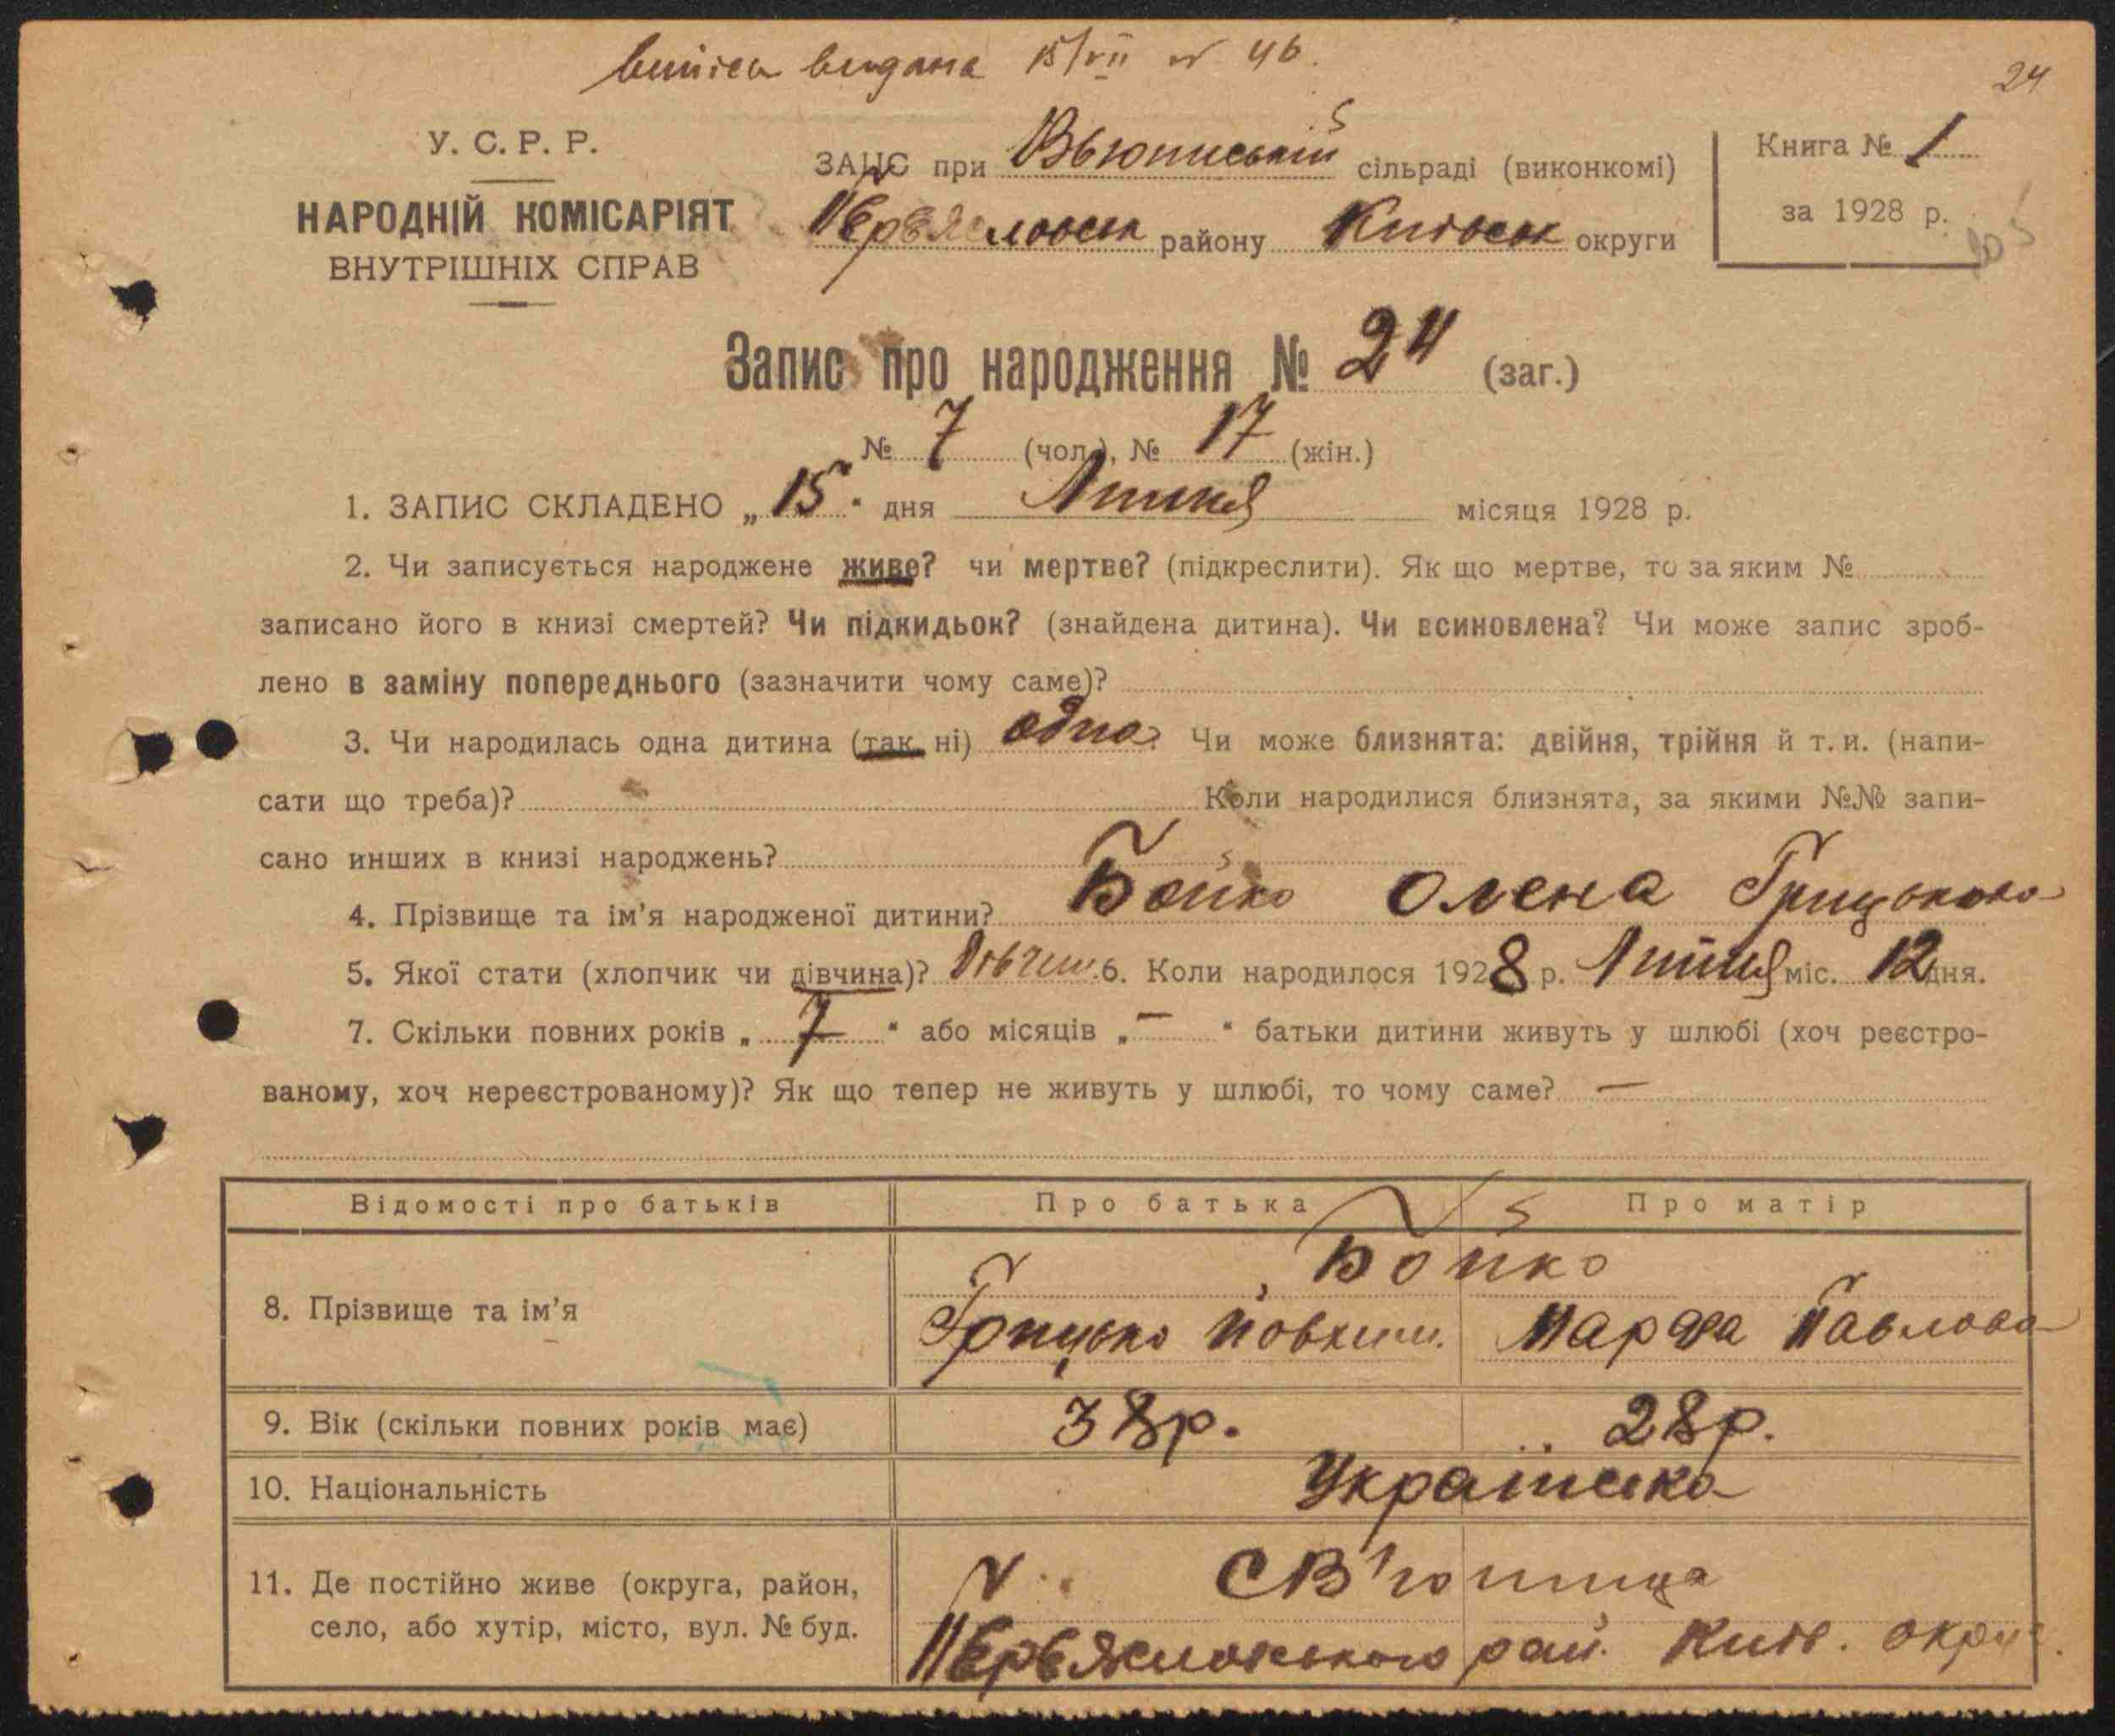 виписъ видана 15/VII № 46.
24
У. С. Р. Р.
НАРОДНІЙ КОМІСАРІЯТ
ВНУТРІШНІХ СПРАВ
ЗАЦС при Вьюниській сільраді (виконкомі)
району Київськ округи
Книга № 1
за 1928 р.
Запис про народження № 24 (заг.)
№ 7 (чол.), № 17 (жін.)
1. ЗАПИС СКЛАДЕНО „15" дня Липня місяця 1928 р.
2. Чи записується народжене живе? чи мертве? (підкреслити). Як що мертве, то за яким №
записано його в книзі смертей? Чи підкидьок? (знайдена дитина). Чи всиновлена? Чи може запис зроб-
лено в заміну попереднього (зазначити чому саме)?
3. Чи народилась одна дитина (так, ні) одна? Чи може близнята: двійня, трійня й т. и. (напи-
сати що треба)? Коли народилися близнята, за якими №№ запи-
сано инших в книзі народжень?
4. Прізвище та ім'я народженої дитини? Бойко Олена Грицькова
5. Якої стати (хлопчик чи дівчина)? 6. Коли народилося 1928 р. Липня міс. 12 дня.
7. Скільки повних років „7" або місяців „—" батьки дитини живуть у шлюбі (хоч реєстро-
ваному, хоч нереєстрованому)? Як що тепер не живуть у шлюбі, то чому саме? —
Відомості про батьків Про батька Про матір
8. Прізвище та ім'я Бойко
Грицько Йовхим. Марфа Павлова
9. Вік (скільки повних років має) 38р. 28р.
10. Національність Українська
11. Де постійно живе (округа, район, С В'юнища
село, або хутір, місто, вул. № буд. рай. Київ. округ